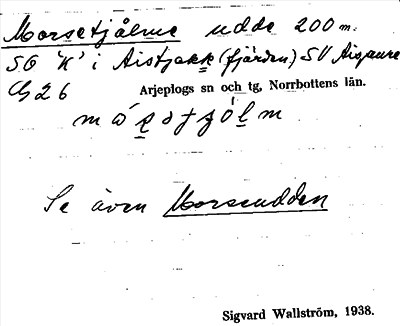 Morsetjålme udde 200 m.
SO "K" i Aistjakk (fjärden) SV Aisjaure
G 26 Arjeplogs sn och tg, Norrbottens län.
Se även Morseudden
Sigvard Wallström, 1938.